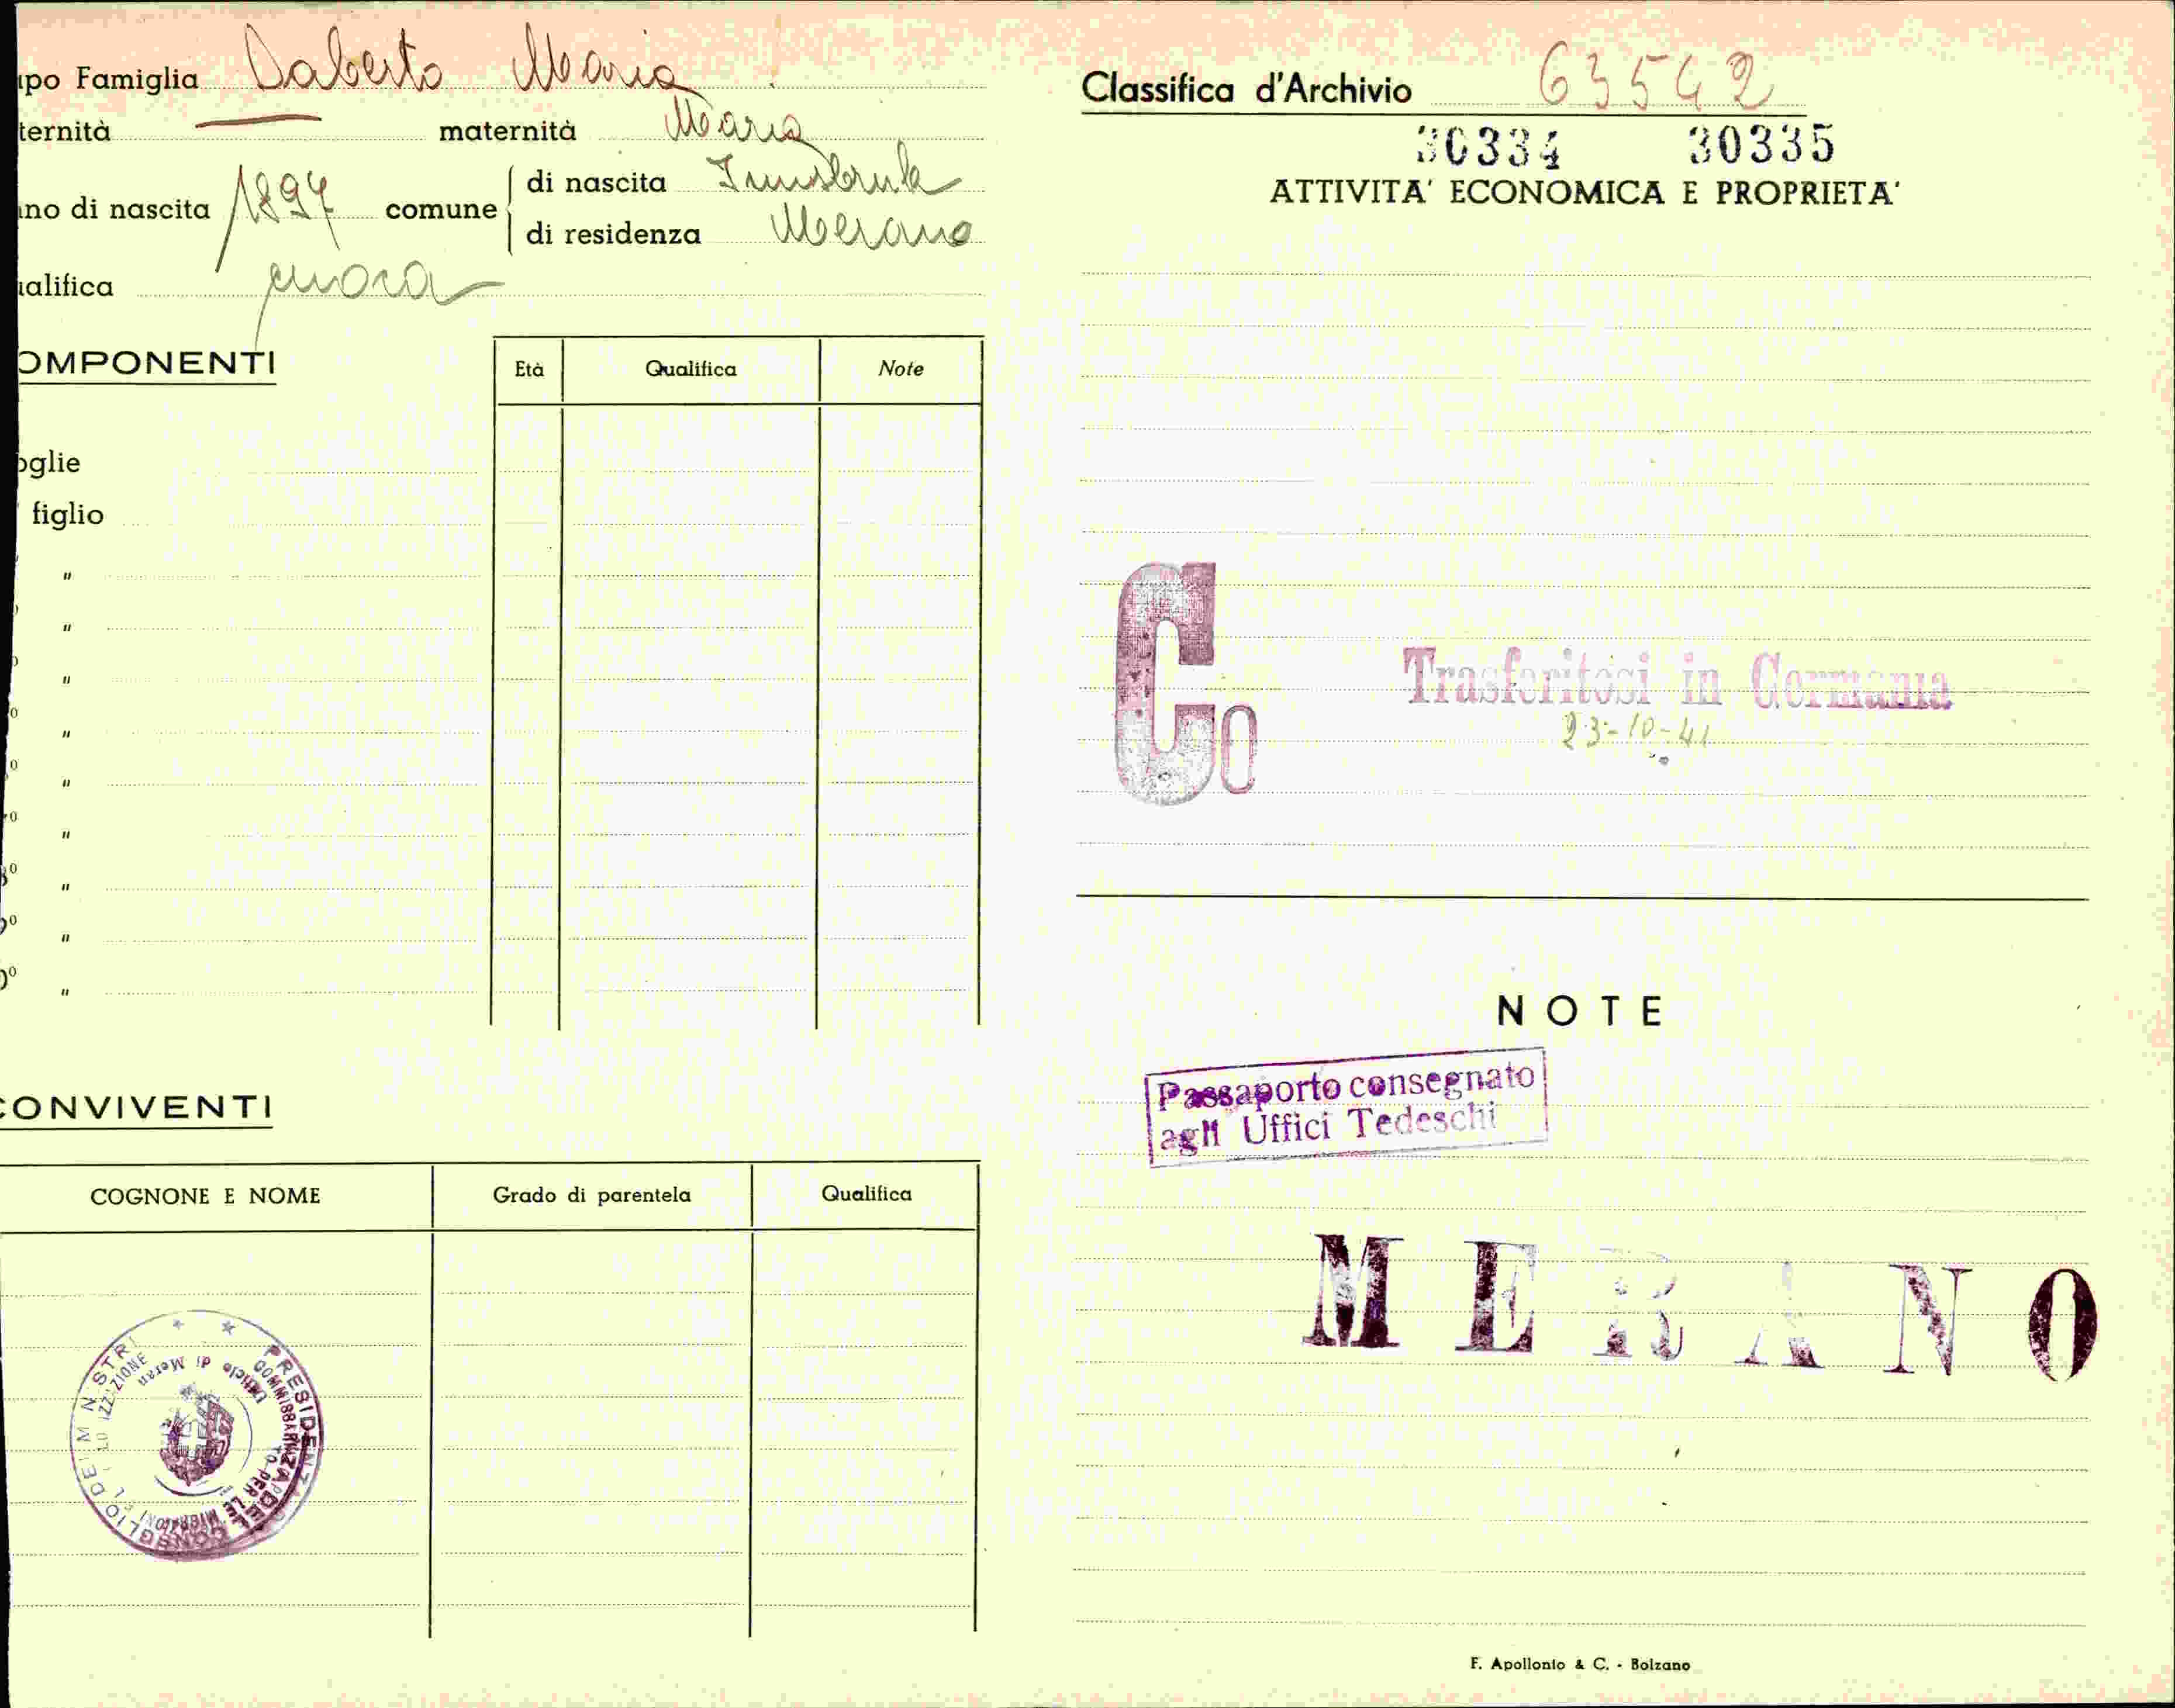 apo Famiglia Daberto Maria
ternità maternità Maria
nno di nascita 1897 comune di nascita Innsbruk
di residenza Merano
ualifica cuoca
OMPONENTI
Età Qualifica Note
oglie
figlio
"
"
"
"
"
"
"
"
"
CONVIVENTI
COGNONE E NOME Grado di parentela Qualifica
PRESIDENZA DEL CONSIGLIO DEI MINISTRI
COMMISSARIATO PER LE MIGRAZIONI
Ufficio di Meran
Classifica d'Archivio 63542
30334 30335
ATTIVITA' ECONOMICA E PROPRIETA'
Co
Trasferitosi in Germania
23-10-41
NOTE
Passaporto consegnato
agli Uffici Tedeschi
MERANO
F. Apollonio & C. - Bolzano